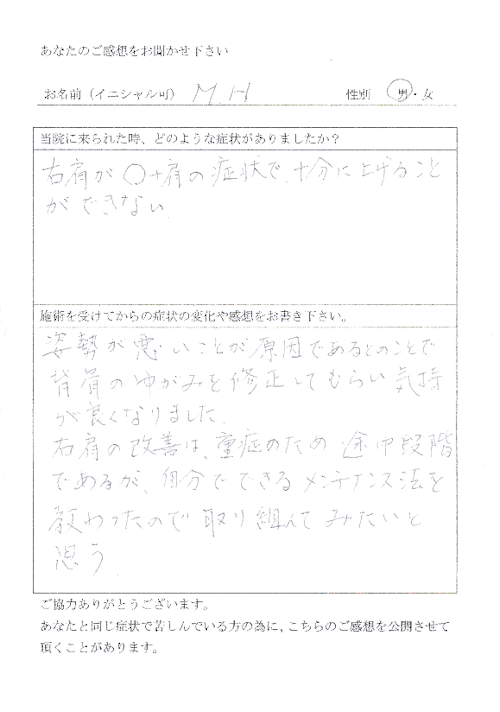 あなたのご感想をお聞かせ下さい
お名前（イニシャル可） M.H 性別 男・女
当院に来られた時、どのような症状がありましたか？
右肩が〇十肩の症状で、十分に上げること
ができない。
施術を受けてからの症状の変化や感想をお書き下さい。
姿勢が悪いことが原因であるとのことで
背骨のゆがみを修正してもらい気持
が良くなりました。
右肩の改善は、重症のため途中段階
であるが、自分でできるメンテナンス法を
教わったので取り組んでみたいと
思う
ご協力ありがとうございます。
あなたと同じ症状で苦しんでいる方の為に、こちらのご感想を公開させて
頂くことがあります。